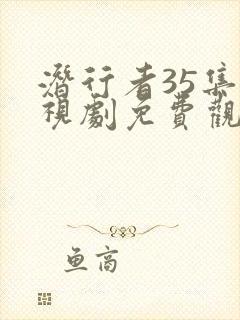 潛行者35集
視劇免費觀
鱼高